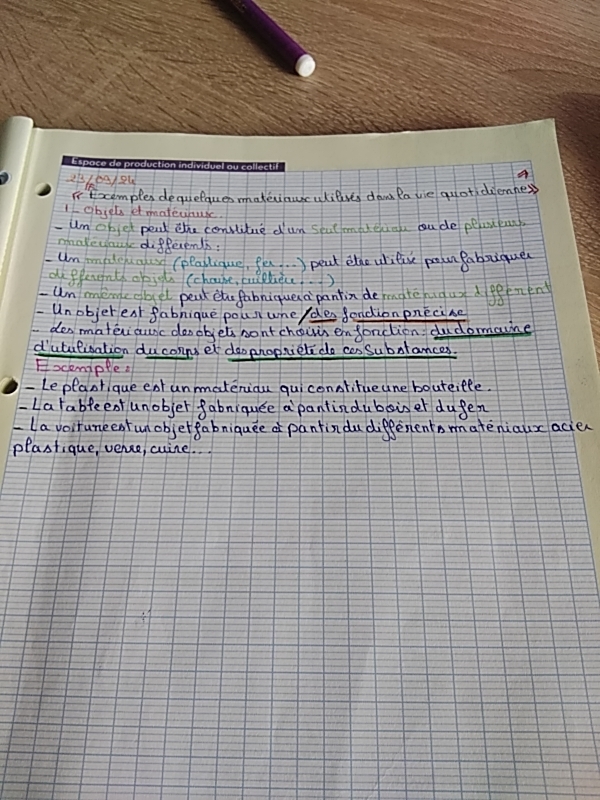 Espace de production individuel ou collectif
23/09/24
« Exemples de quelques matériaux utilisés dans la vie quotidienne »
1 - Objets et matériaux.
- Un objet peut être constitué d'un seul matériau ou de plusieurs
matériaux différents :
- Un matériaux (plastique, fer...) peut être utilisé pour fabriquer
différents objets (chaise, cuillière...)
- Un même objet peut être fabriquer à partir de matériaux différent
- Un objet est fabriqué pour une / des fonction précise
- Les matériaux des objets sont choisis en fonction : du domaine
d'utilisation du corps et des propriété de ces substances.
Exemple :
- Le plastique est un matériau qui constitue une bouteille.
- La table est un objet fabriquée à partir du bois et du fer
- La voiture est un objet fabriquée à partir du différents matériaux acier
plastique, verre, cuire...